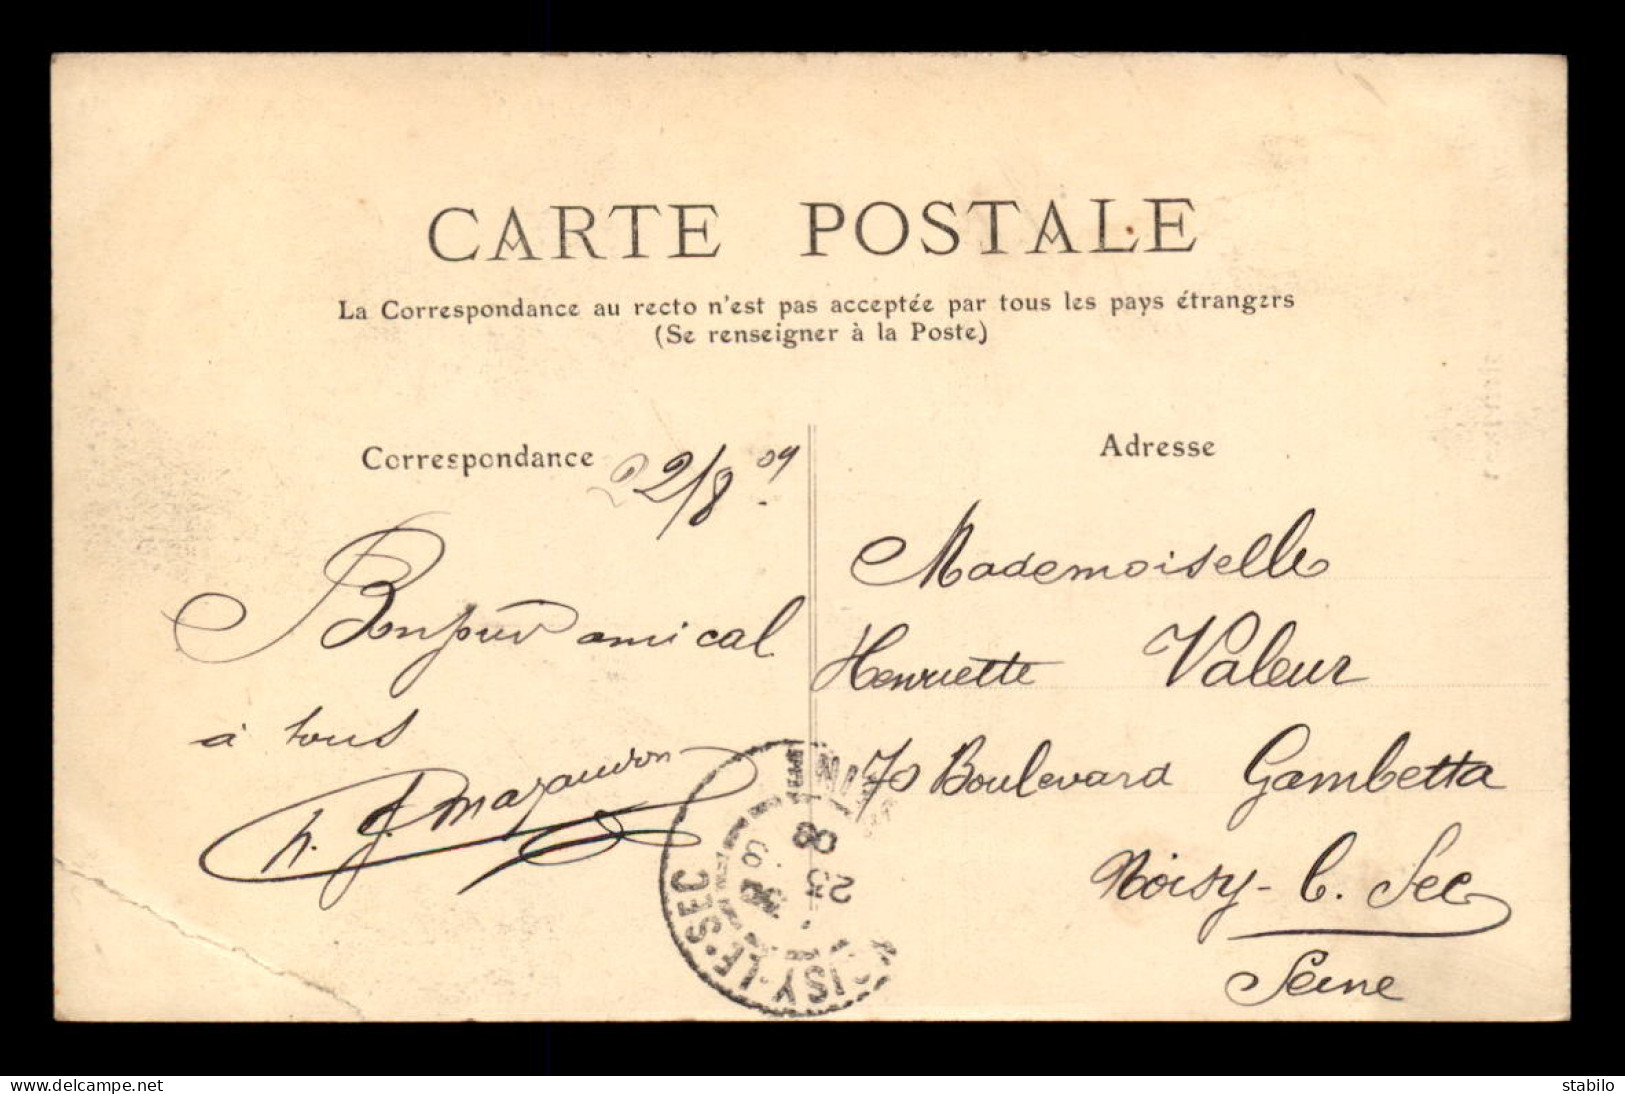 CARTE POSTALE
La Correspondance au recto n'est pas acceptée par tous les pays étrangers
(Se renseigner à la Poste)
Correspondance
22/8 09
Bonjour amical
à tous
Adresse
Mademoiselle
Henriette Valeur
70 Boulevard Gambetta
Noisy-l. Sec
Seine
ISY-LE-SEC
delcampe.net
stabilo